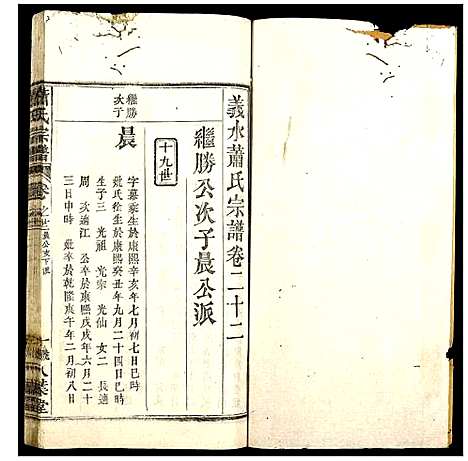 義水蕭氏宗譜卷二十二
繼勝公次子晨公派
十九世
繼勝
次子
晨
字慕菴生於康熙辛亥年七月初七日巳時
妣氏徐生於康熙癸丑年九月二十四日巳時
生子三 光祖 光宗 光仙 女二 長適
周 次適江 公卒於康熙戊戌年六月二十
三日申時 妣卒於乾隆戊午年二月初八日
蕭氏宗譜
八葉堂